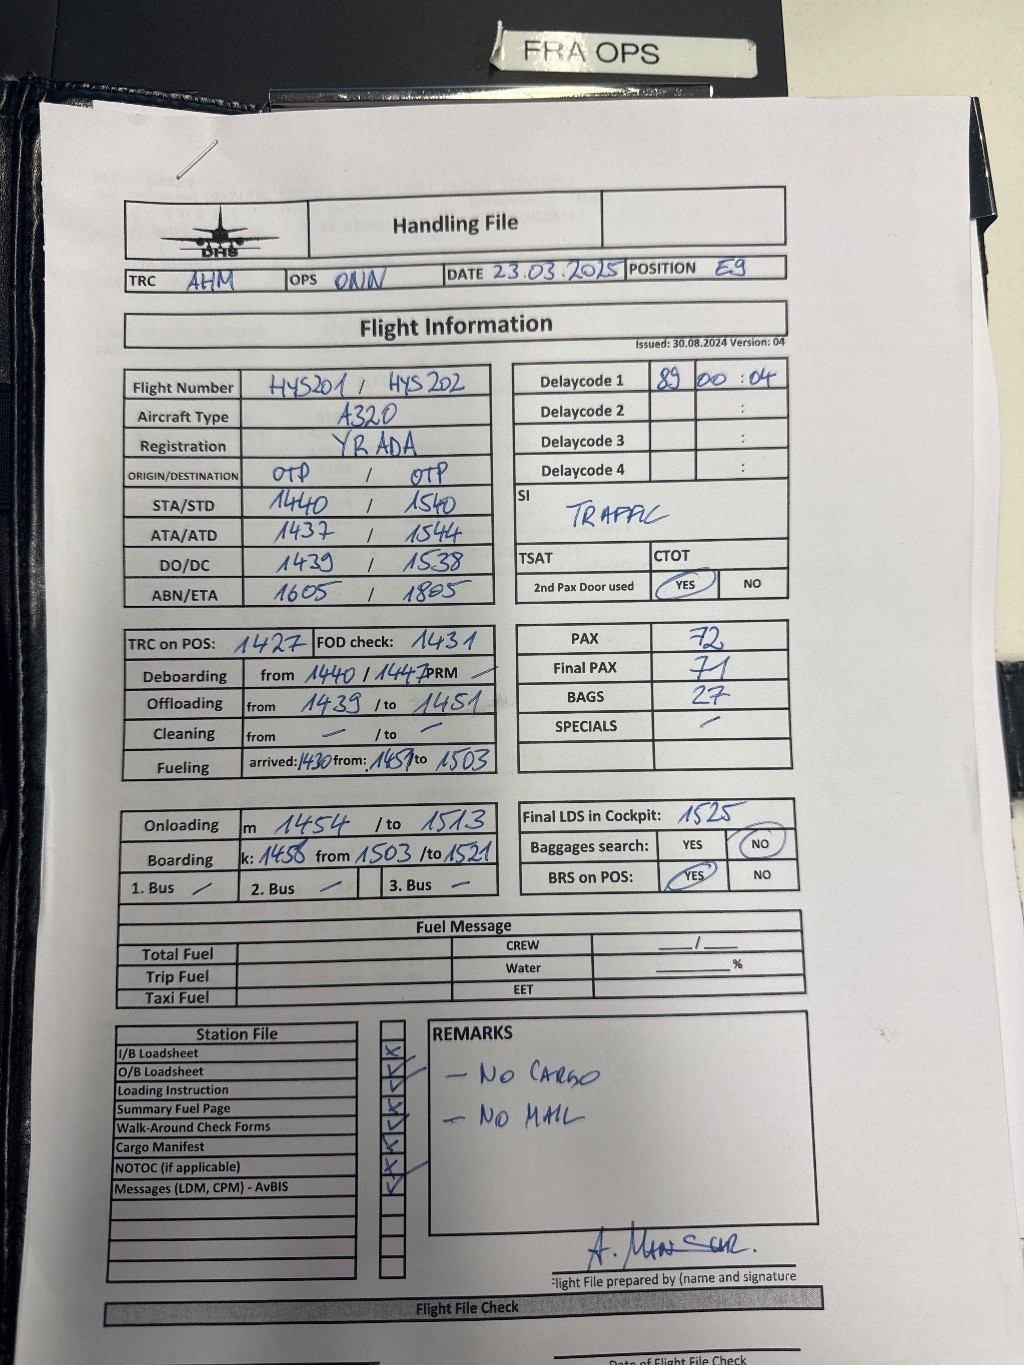 FRA OPS
DHS
Handling File
TRC AHM OPS ONN DATE 23.03.2025 POSITION E9
Flight Information
Issued: 30.08.2024 Version: 04
Flight Number HYS201 / HYS202
Aircraft Type A320
Registration YR ADA
ORIGIN/DESTINATION OTP / OTP
STA/STD 1440 / 1540
ATA/ATD 1437 / 1544
DO/DC 1439 / 1538
ABN/ETA 1605 / 1805
Delaycode 1 89 00 : 04
Delaycode 2 :
Delaycode 3 :
Delaycode 4 :
SI
TRAFFIC
TSAT CTOT
2nd Pax Door used YES NO
TRC on POS: 1427 FOD check: 1431
Deboarding from 1440 / 1447 PRM –
Offloading from 1439 / to 1451
Cleaning from – / to –
Fueling arrived: 1430 from: 1451 to 1503
PAX 72
Final PAX 71
BAGS 27
SPECIALS –
Onloading m 1454 / to 1513
Boarding k: 1456 from 1503 / to 1521
1. Bus – 2. Bus – 3. Bus –
Final LDS in Cockpit: 1525
Baggages search: YES NO
BRS on POS: YES NO
Fuel Message
Total Fuel CREW ___/___
Trip Fuel Water _______%
Taxi Fuel EET
Station File
I/B Loadsheet x
O/B Loadsheet ✓
Loading Instruction ✓
Summary Fuel Page x
Walk-Around Check Forms ✓
Cargo Manifest x
NOTOC (if applicable) x
Messages (LDM, CPM) - AvBIS ✓
REMARKS
– NO CARGO
– NO MAIL
A. Mansur.
Flight File prepared by (name and signature
Flight File Check
Date of Flight File Check